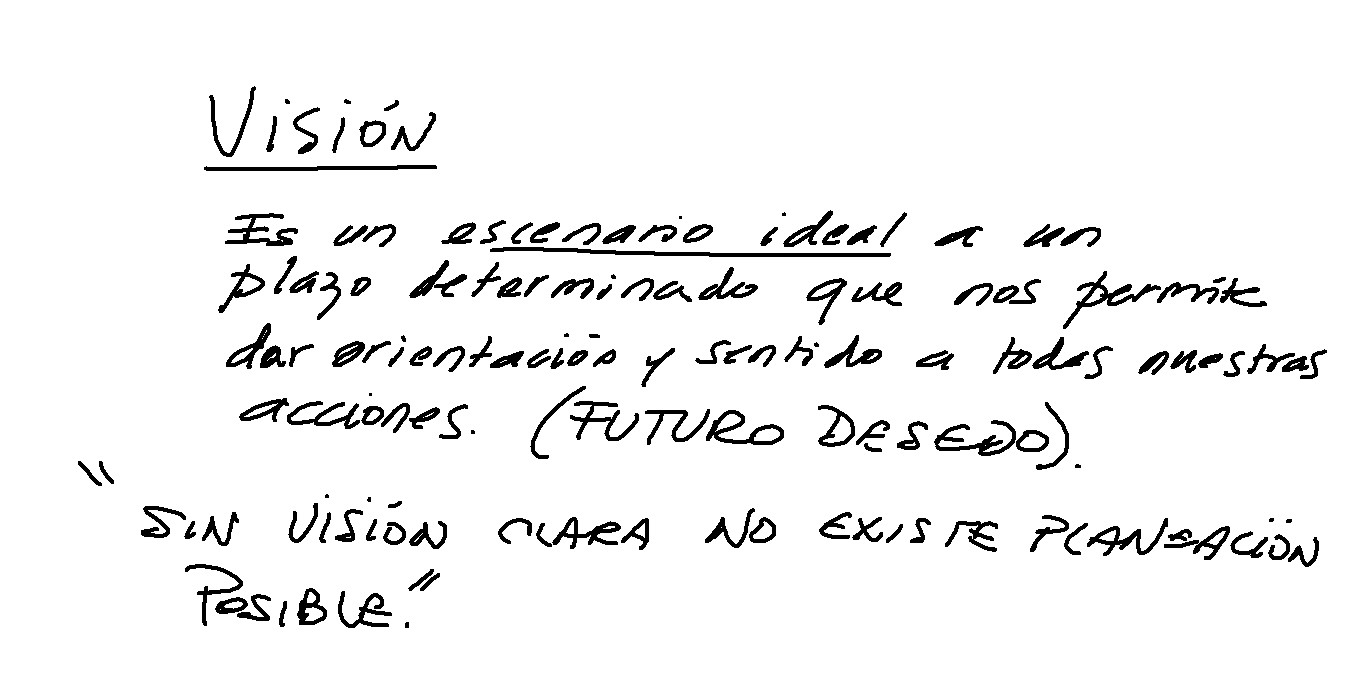 Visión
Es un escenario ideal a un
plazo determinado que nos permite
dar orientación y sentido a todas nuestras
acciones. (FUTURO DESEDO).
"SIN VISIÓN CLARA NO EXISTE PLANEACIÓN
POSIBLE."